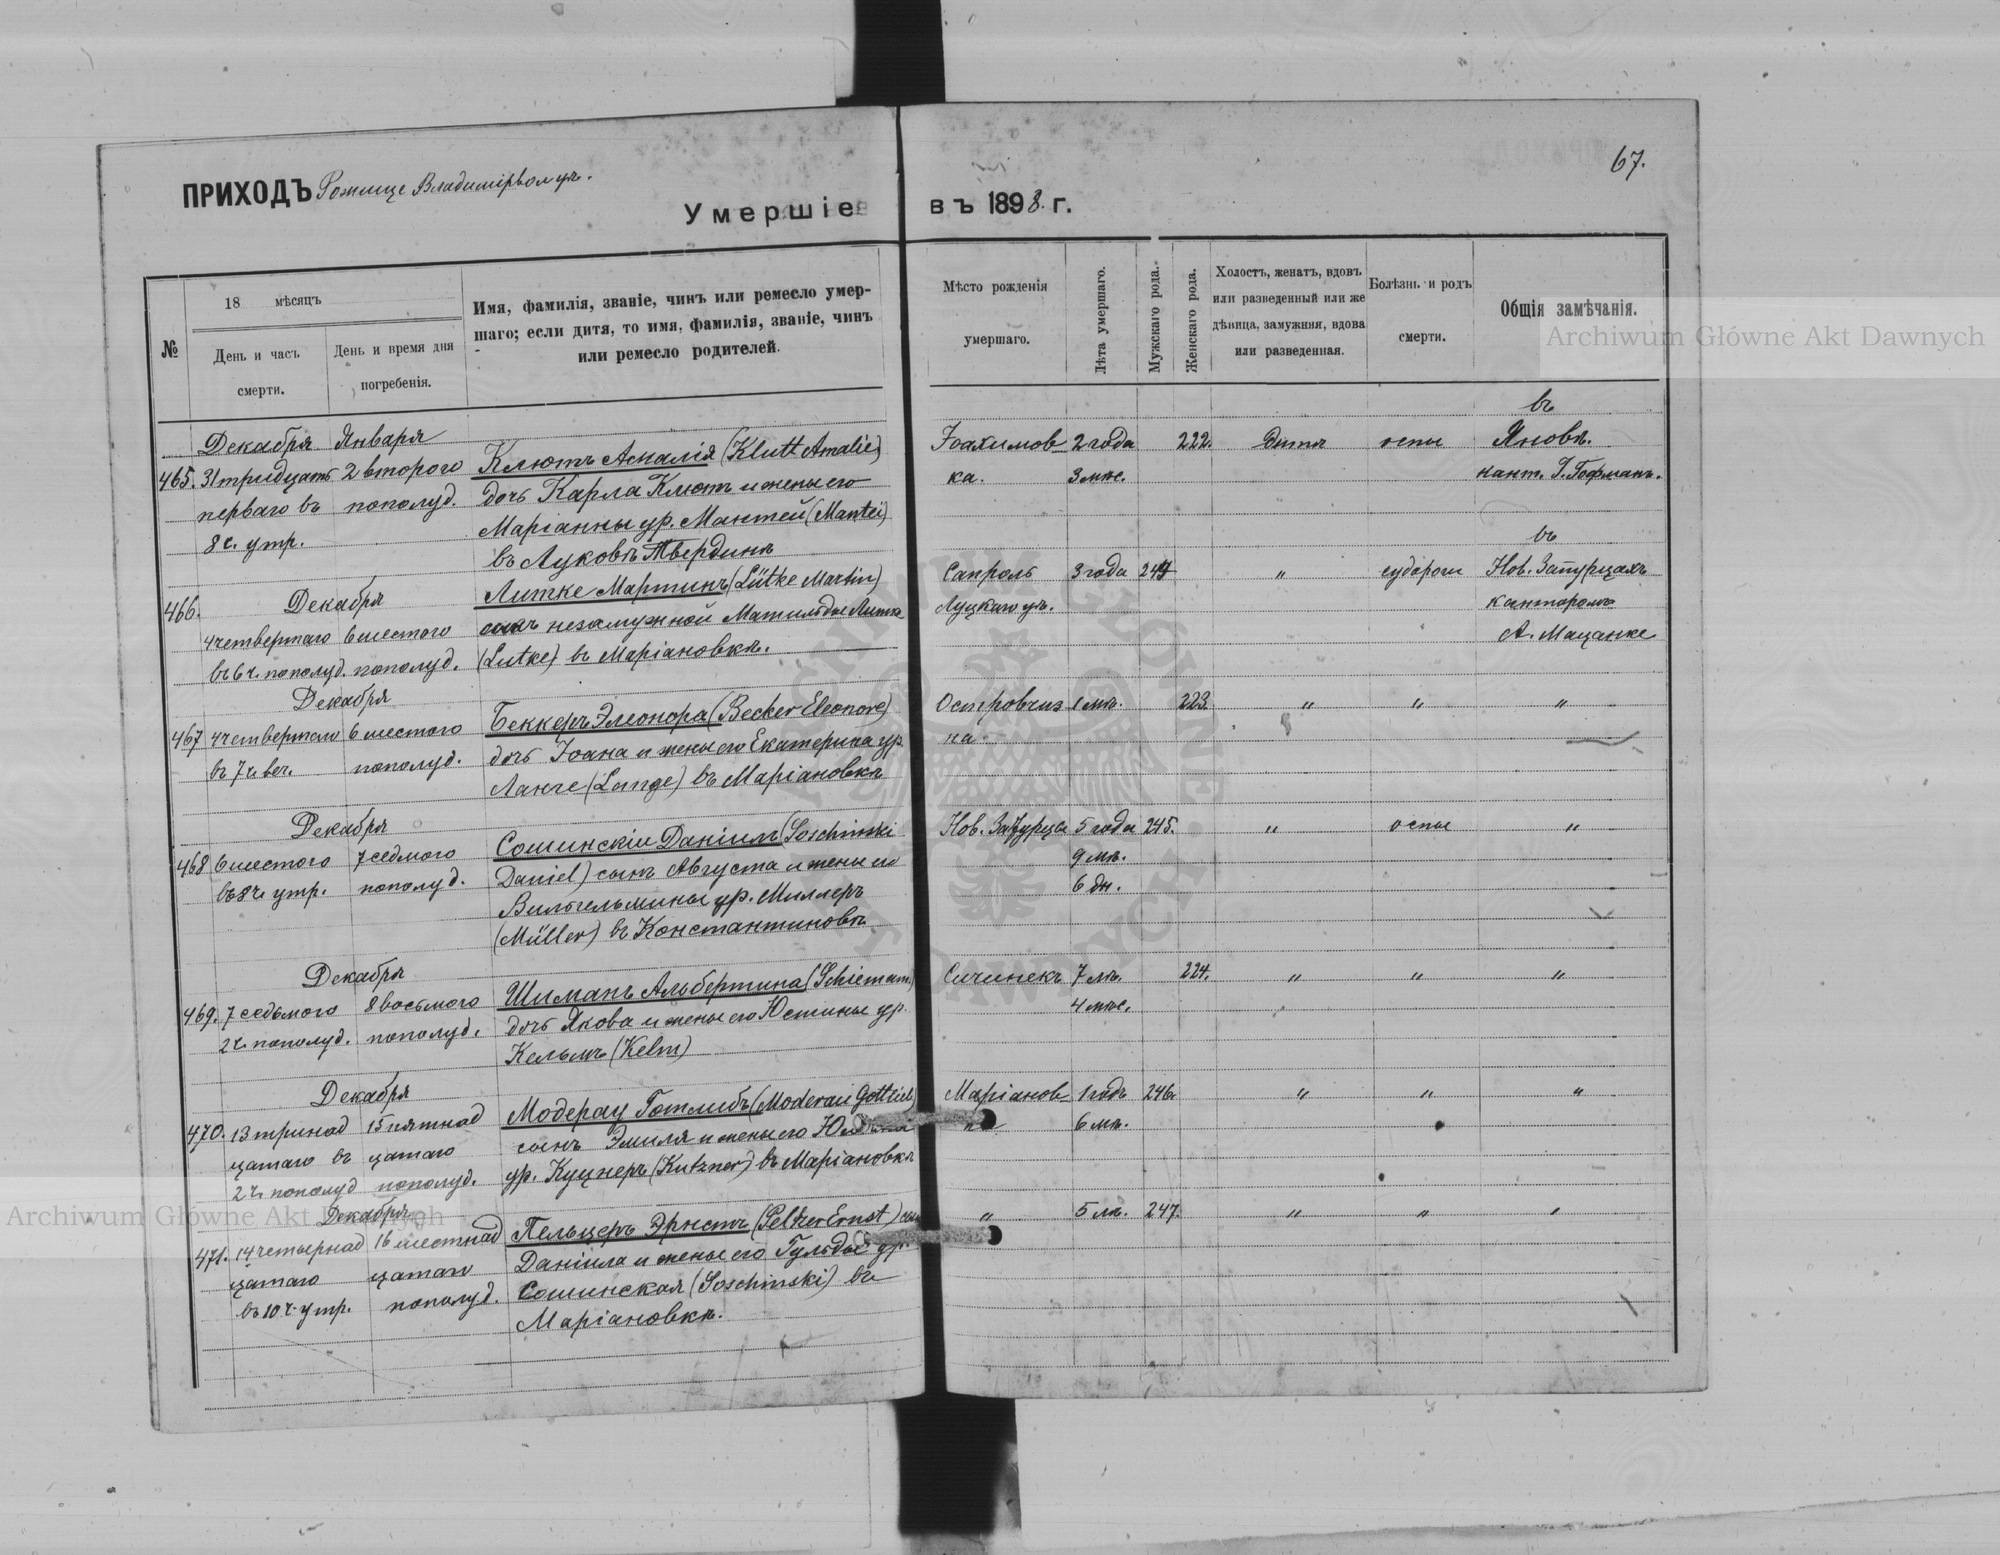 67.
ПРИХОДЪ Рожище Владимірвол ул.
Умершіе въ 1898. г.
№
18 мѣсяцъ
День и часъ смерти.
День и время дня погребенія.
Имя, фамилія, званіе, чинъ или ремесло умер-
шаго; если дитя, то имя, фамилія, званіе, чинъ
или ремесло родителей.
Мѣсто рожденія
умершаго.
Лѣта умершаго.
Мужскаго рода.
Женскаго рода.
Холостъ, женатъ, вдовъ
или разведенный или же
дѣвица, замужняя, вдова
или разведенная.
Болѣзнь и родъ
смерти.
Общія замѣчанія.
Archiwum Główne Akt Dawnych
въ
Декабря Января
465. 31 тридцать 2 второго Клютъ Амалія (Klutt Amalie) Іоахимов- 2 года 222. дитя оспы Яновѣ.
перваго въ пополуд. дочь Карла Клютъ и жены его ка. 3 мѣс. кант. Г. Гофманъ.
8 ч. утр. Маріанны ур. Мантей (Mantei)
въ Луковѣ Твердинѣ въ
466. Декабря Литке Мартинъ (Lütke Martin) Сапроль 3 года 244 " судороги Нов. Затурцахъ
4 четвертаго 6 шестого сынъ незамужной Матильды Литке Луцкаго уѣ. канторомъ
въ 6 ч. пополуд. пополуд. (Lutke) въ Маріановкѣ. А. Мацанке
Декабря
467 4 четвертаго 6 шестого Беккеръ Элеонора (Becker Eleonore) Островчиз 1 мѣс. 223. " " "
въ 7 ч. веч. пополуд. дочь Іоана и жены его Екатерина ур. на
Ланге (Lange) въ Маріановкѣ
Декабря
468 6 шестого 7 седмого Сошинскій Даніилъ (Soschinski Нов. Затурцы 5 года 245. " оспы "
въ 8 ч. утр. пополуд. Daniel) сынъ Августа и жены его 9 мѣ.
Вильгельмины ур. Миллеръ 6 дн.
(Müller) въ Константиновкѣ
Декабря
469. 7 седьмого 8 восьмого Шиманъ Альбертина (Schiemann) Сичинекъ 7 лѣ. 224. " " "
2 ч. пополуд. пополуд. дочь Якова и жены его Юстины ур. 4 мѣс.
Кельмъ (Kelm)
Декабря
470. 13 тринад 15 пятнад Модерау Готлибъ (Moderau Gottlieb) Маріанов- 1 годъ 246. " " "
цатаго въ цатаго сынъ Эмиля и жены его 6 мѣ.
2 ч. пополуд пополуд. ур. Куцнеръ (Kutzner) въ Маріановкѣ
Декабря
471. 14 четырнад 16 шестнад Пельцеръ Эрнстъ (Pelzer Ernst) " 5 лѣ. 247. " " "
цатаго цатаго Даніила и жены его Гульды ур.
въ 10 ч. утр. пополуд. Сошинская (Soschinski) въ
Маріановкѣ.
Archiwum Główne Akt Dawnych